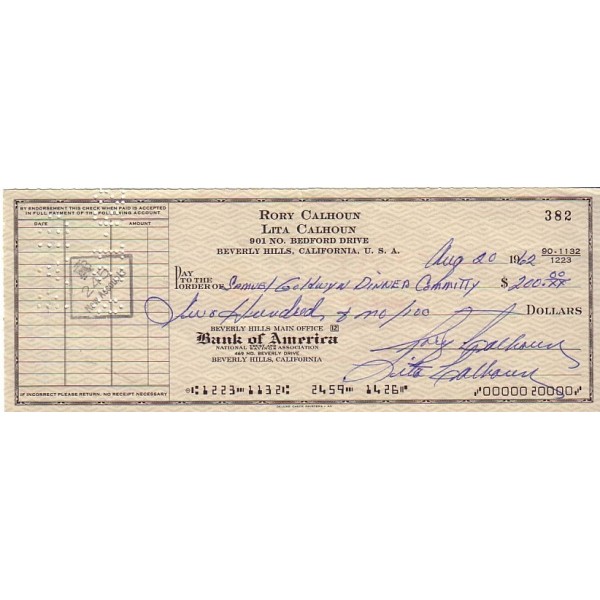 BY ENDORSEMENT THIS CHECK WHEN PAID IS ACCEPTED
IN FULL PAYMENT OF THE FOLLOWING ACCOUNT
DATE AMOUNT
IF INCORRECT PLEASE RETURN. NO RECEIPT NECESSARY
RORY CALHOUN
LITA CALHOUN
901 NO. BEDFORD DRIVE
BEVERLY HILLS, CALIFORNIA, U. S. A.
382
Aug 20 1962
90-1132
1223
PAY
TO THE
ORDER OF Samuel Goldwyn Dinner Committy $ 200.00
Two Hundred & no/100 DOLLARS
BEVERLY HILLS MAIN OFFICE 12
Bank of America
NATIONAL TRUST AND SAVINGS ASSOCIATION
469 NO. BEVERLY DRIVE
BEVERLY HILLS, CALIFORNIA
Rory Calhoun
Lita Calhoun
1223 1132 2459 1426 0000020000